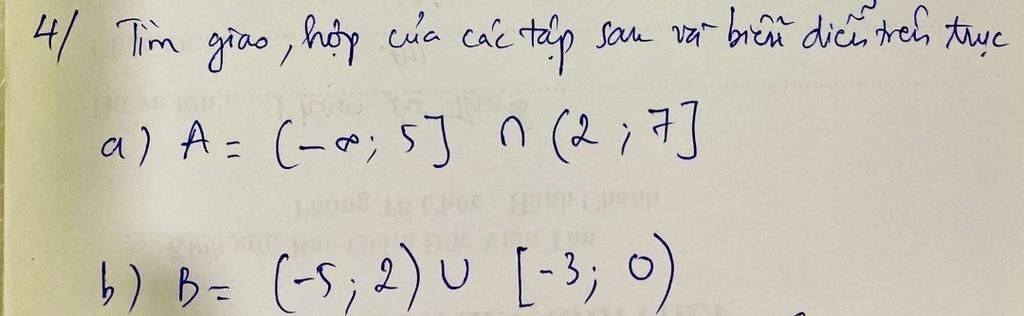 4/ Tìm giao, hợp của các tập sau và biểu diễn trên trục
a) A = (-∞; 5] ∩ (2; 7]
b) B = (-5; 2) ∪ [-3; 0)